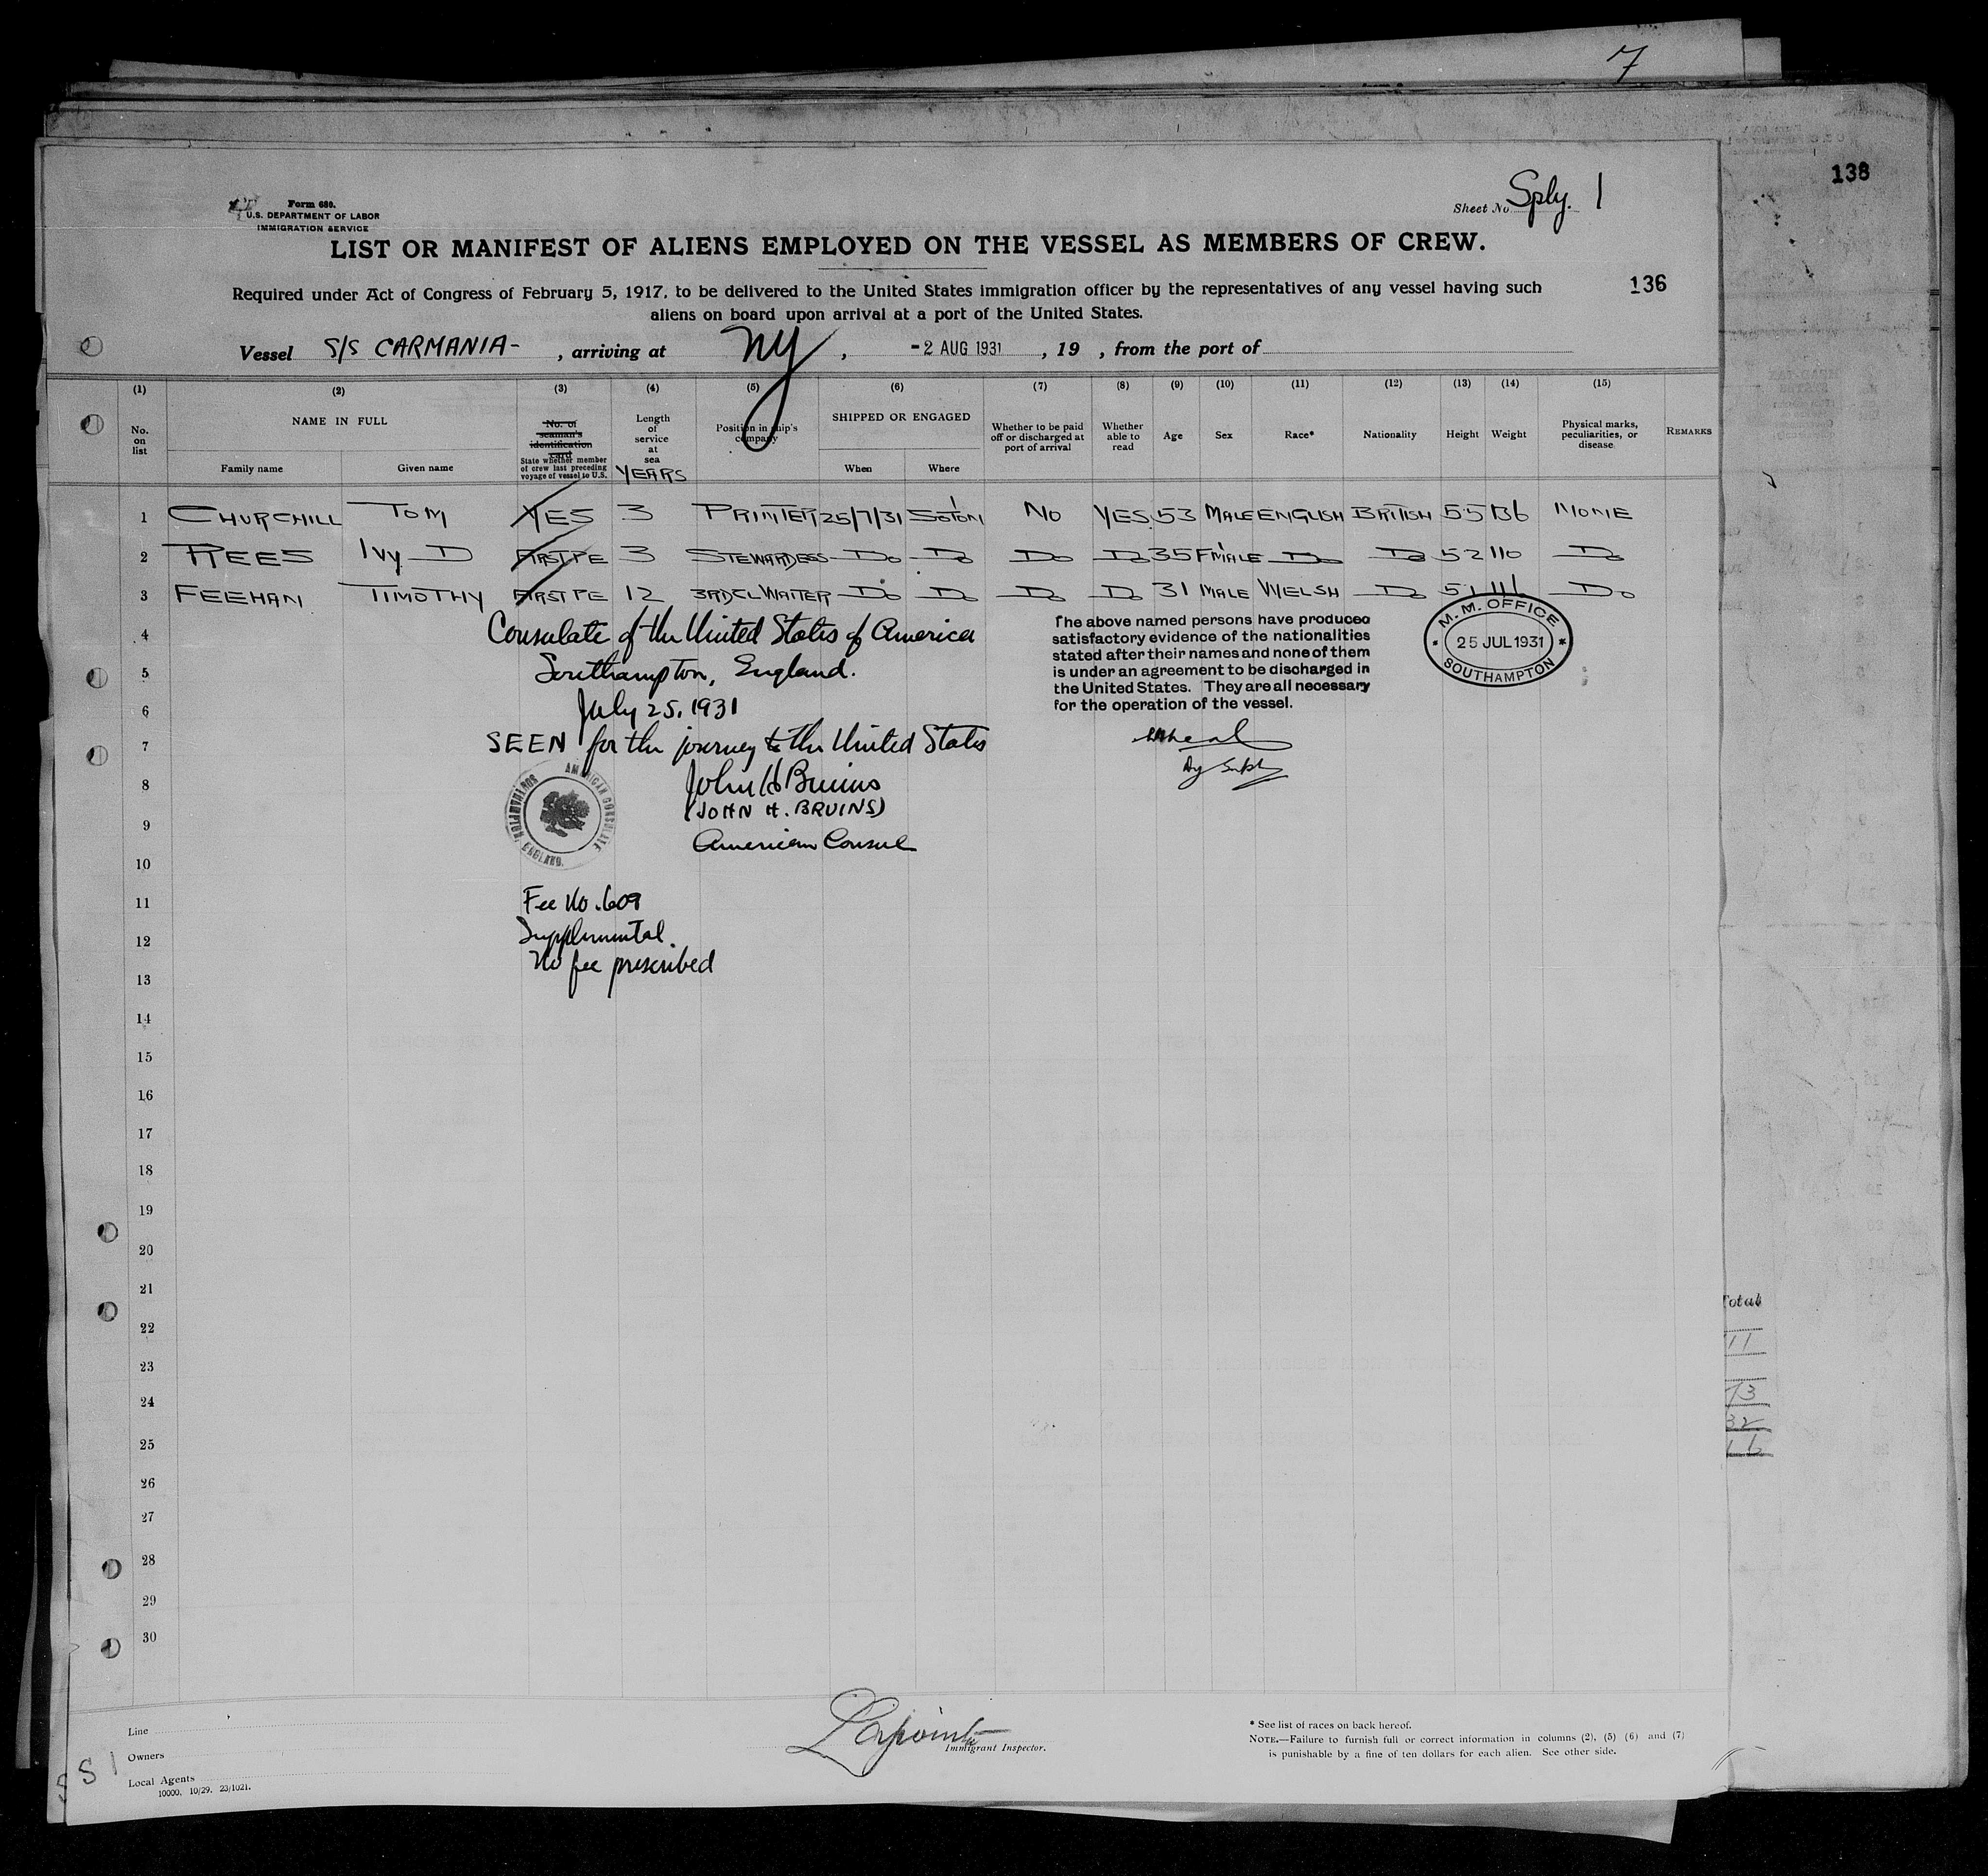 7
138
Form 680.
U.S. DEPARTMENT OF LABOR
IMMIGRATION SERVICE
Sheet No. Sply. 1
LIST OR MANIFEST OF ALIENS EMPLOYED ON THE VESSEL AS MEMBERS OF CREW.
Required under Act of Congress of February 5, 1917, to be delivered to the United States immigration officer by the representatives of any vessel having such
aliens on board upon arrival at a port of the United States.
136
Vessel S/S CARMANIA- , arriving at NY , -2 AUG 1931 , 19 , from the port of
(1) (2) (3) (4) (5) (6) (7) (8) (9) (10) (11) (12) (13) (14) (15)
No. on list
NAME IN FULL
Family name
Given name
No. of seaman's identification card
State whether member of crew last preceding voyage of vessel to U.S.
Length of service at sea
YEARS
Position in ship's company
SHIPPED OR ENGAGED
When
Where
Whether to be paid off or discharged at port of arrival
Whether able to read
Age
Sex
Race*
Nationality
Height
Weight
Physical marks, peculiarities, or disease
REMARKS
1 CHURCHILL TOM YES 3 PRINTER 25/7/31 SOTON NO YES 53 MALE ENGLISH BRITISH 5.5 136 NONE
2 REES IVY D FIRST PE 3 STEWARDESS DO DO DO DO 35 F'MALE DO DO 52 110 DO
3 FEEHAN TIMOTHY FIRST PE 12 3RD CL WAITER DO DO DO DO 31 MALE WELSH DO 51 116 DO
4
5
6
7
8
9
10
11
12
13
14
15
16
17
18
19
20
21
22
23
24
25
26
27
28
29
30
Consulate of the United States of America
Southampton, England.
July 25, 1931
SEEN for the journey to the United States
John H Bruins
(JOHN H. BRUINS)
American Consul
AMERICAN CONSULATE
SOUTHAMPTON
ENGLAND.
Fee No. 609
Supplemental.
No fee prescribed
The above named persons have produced
satisfactory evidence of the nationalities
stated after their names and none of them
is under an agreement to be discharged in
the United States. They are all necessary
for the operation of the vessel.
M.M. OFFICE
25 JUL 1931
SOUTHAMPTON
Total
11
73
32
16
Line
Owners
Local Agents
10000. 10/29. 23/1021.
S S 1
Lapointe
Immigrant Inspector.
* See list of races on back hereof.
NOTE.—Failure to furnish full or correct information in columns (2), (5) (6) and (7)
is punishable by a fine of ten dollars for each alien. See other side.